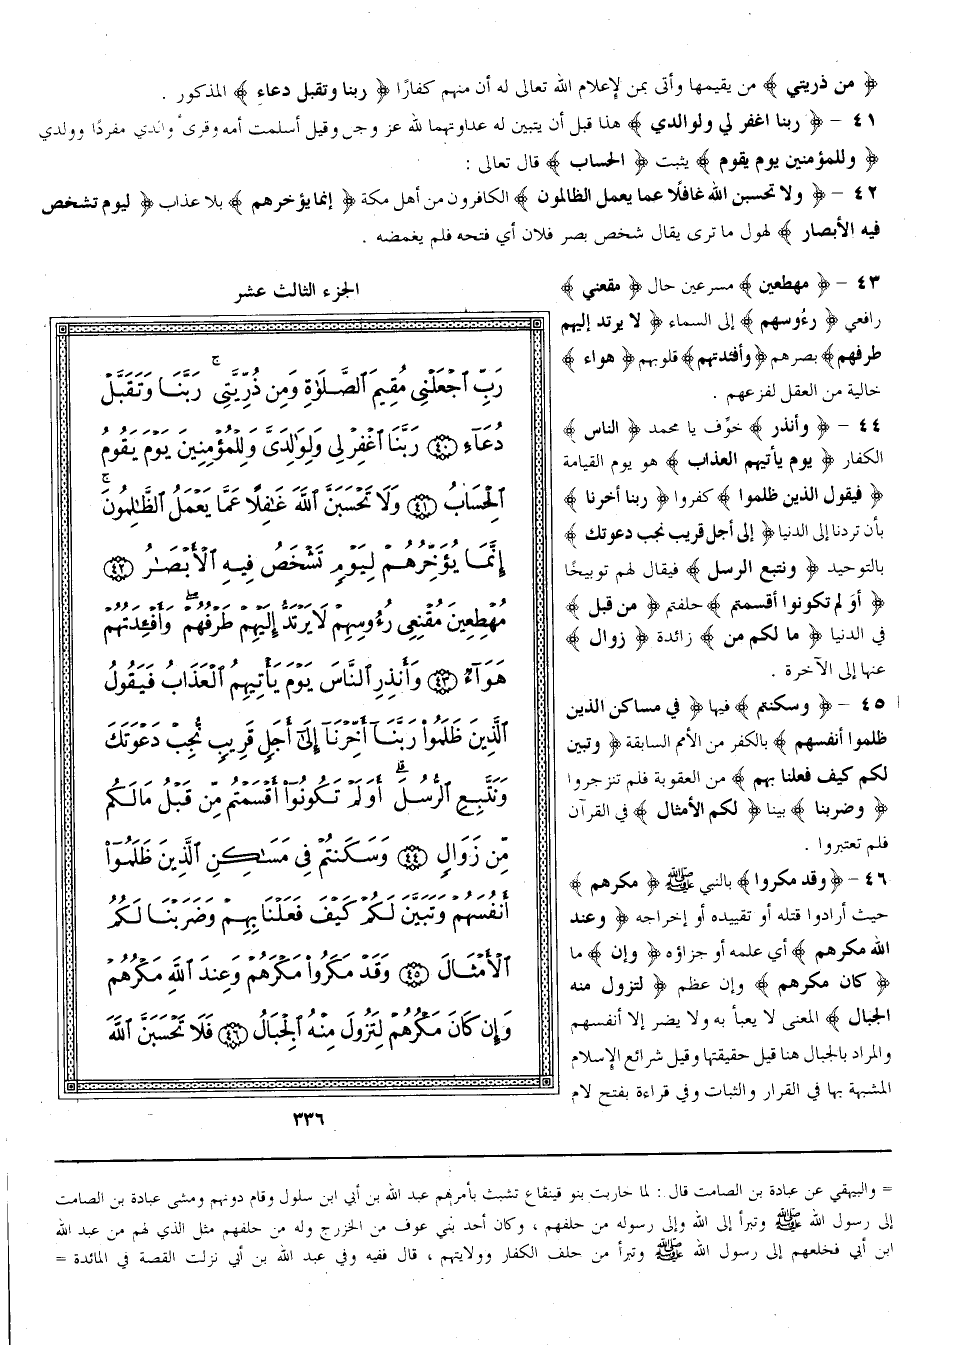 ﴿ من ذريتي ﴾ من يقيمها وأتى بمن لإعلام الله تعالى له أن منهم كفارًا ﴿ ربنا وتقبل دعاء ﴾ المذكور .
٤١ - ﴿ ربنا اغفر لي ولوالدي ﴾ هذا قبل أن يتبين له عداوتهما لله عز وجل وقيل أسلمت أمه وقرئ والدي مفردًا وولدي
﴿ وللمؤمنين يوم يقوم ﴾ يثبت ﴿ الحساب ﴾ قال تعالى :
٤٢ - ﴿ ولا تحسبن الله غافلًا عما يعمل الظالمون ﴾ الكافرون من أهل مكة ﴿ إنما يؤخرهم ﴾ بلا عذاب ﴿ ليوم تشخص
فيه الأبصار ﴾ لهول ما ترى يقال شخص بصر فلان أي فتحه فلم يغمضه .
٤٣ - ﴿ مهطعين ﴾ مسرعين حال ﴿ مقنعي ﴾
رافعي ﴿ رءوسهم ﴾ إلى السماء ﴿ لا يرتد إليهم
طرفهم ﴾ بصرهم ﴿ وأفئدتهم ﴾ قلوبهم ﴿ هواء ﴾
خالية من العقل لفزعهم .
٤٤ - ﴿ وأنذر ﴾ خوِّف يا محمد ﴿ الناس ﴾
الكفار ﴿ يوم يأتيهم العذاب ﴾ هو يوم القيامة
﴿ فيقول الذين ظلموا ﴾ كفروا ﴿ ربنا أخرنا ﴾
بأن تردنا إلى الدنيا ﴿ إلى أجل قريب نجب دعوتك ﴾
بالتوحيد ﴿ ونتبع الرسل ﴾ فيقال لهم توبيخًا
﴿ أو لم تكونوا أقسمتم ﴾ حلفتم ﴿ من قبل ﴾
في الدنيا ﴿ ما لكم من ﴾ زائدة ﴿ زوال ﴾
عنها إلى الآخرة .
٤٥ - ﴿ وسكنتم ﴾ فيها ﴿ في مساكن الذين
ظلموا أنفسهم ﴾ بالكفر من الأمم السابقة ﴿ وتبين
لكم كيف فعلنا بهم ﴾ من العقوبة فلم تنزجروا
﴿ وضربنا ﴾ بينا ﴿ لكم الأمثال ﴾ في القرآن
فلم تعتبروا .
٤٦ - ﴿ وقد مكروا ﴾ بالنبي ﷺ ﴿ مكرهم ﴾
حيث أرادوا قتله أو تقييده أو إخراجه ﴿ وعند
الله مكرهم ﴾ أي علمه أو جزاؤه ﴿ وإن ﴾ ما
﴿ كان مكرهم ﴾ وإن عظم ﴿ لتزول منه
الجبال ﴾ المعنى لا يعبأ به ولا يضر إلا أنفسهم
والمراد بالجبال هنا قيل حقيقتها وقيل شرائع الإسلام
المشبهة بها في القرار والثبات وفي قراءة بفتح لام
الجزء الثالث عشر
رَبِّ ٱجْعَلْنِى مُقِيمَ ٱلصَّلَوٰةِ وَمِن ذُرِّيَّتِى ۚ رَبَّنَا وَتَقَبَّلْ
دُعَآءِ ﴿٤٠﴾ رَبَّنَا ٱغْفِرْ لِى وَلِوَٰلِدَىَّ وَلِلْمُؤْمِنِينَ يَوْمَ يَقُومُ
ٱلْحِسَابُ ﴿٤١﴾ وَلَا تَحْسَبَنَّ ٱللَّهَ غَٰفِلًا عَمَّا يَعْمَلُ ٱلظَّٰلِمُونَ ۚ
إِنَّمَا يُؤَخِّرُهُمْ لِيَوْمٍ تَشْخَصُ فِيهِ ٱلْأَبْصَٰرُ ﴿٤٢﴾
مُهْطِعِينَ مُقْنِعِى رُءُوسِهِمْ لَا يَرْتَدُّ إِلَيْهِمْ طَرْفُهُمْ ۖ وَأَفْـِٔدَتُهُمْ
هَوَآءٌ ﴿٤٣﴾ وَأَنذِرِ ٱلنَّاسَ يَوْمَ يَأْتِيهِمُ ٱلْعَذَابُ فَيَقُولُ
ٱلَّذِينَ ظَلَمُوا۟ رَبَّنَآ أَخِّرْنَآ إِلَىٰٓ أَجَلٍ قَرِيبٍ نُّجِبْ دَعْوَتَكَ
وَنَتَّبِعِ ٱلرُّسُلَ ۗ أَوَلَمْ تَكُونُوٓا۟ أَقْسَمْتُم مِّن قَبْلُ مَا لَكُم
مِّن زَوَالٍ ﴿٤٤﴾ وَسَكَنتُمْ فِى مَسَٰكِنِ ٱلَّذِينَ ظَلَمُوٓا۟
أَنفُسَهُمْ وَتَبَيَّنَ لَكُمْ كَيْفَ فَعَلْنَا بِهِمْ وَضَرَبْنَا لَكُمُ
ٱلْأَمْثَالَ ﴿٤٥﴾ وَقَدْ مَكَرُوا۟ مَكْرَهُمْ وَعِندَ ٱللَّهِ مَكْرُهُمْ
وَإِن كَانَ مَكْرُهُمْ لِتَزُولَ مِنْهُ ٱلْجِبَالُ ﴿٤٦﴾ فَلَا تَحْسَبَنَّ ٱللَّهَ
٣٣٦
= والبيهقي عن عبادة بن الصامت قال : لما حاربت بنو قينقاع تشبث بأمرهم عبد الله بن أبي ابن سلول وقام دونهم ومشى عبادة بن الصامت
إلى رسول الله ﷺ وتبرأ إلى الله وإلى رسوله من حلفهم ، وكان أحد بني عوف من الخزرج وله من حلفهم مثل الذي لهم من عبد الله
ابن أبي فخلعهم إلى رسول الله ﷺ وتبرأ من حلف الكفار وولايتهم ، قال ففيه وفي عبد الله بن أبي نزلت القصة في المائدة =